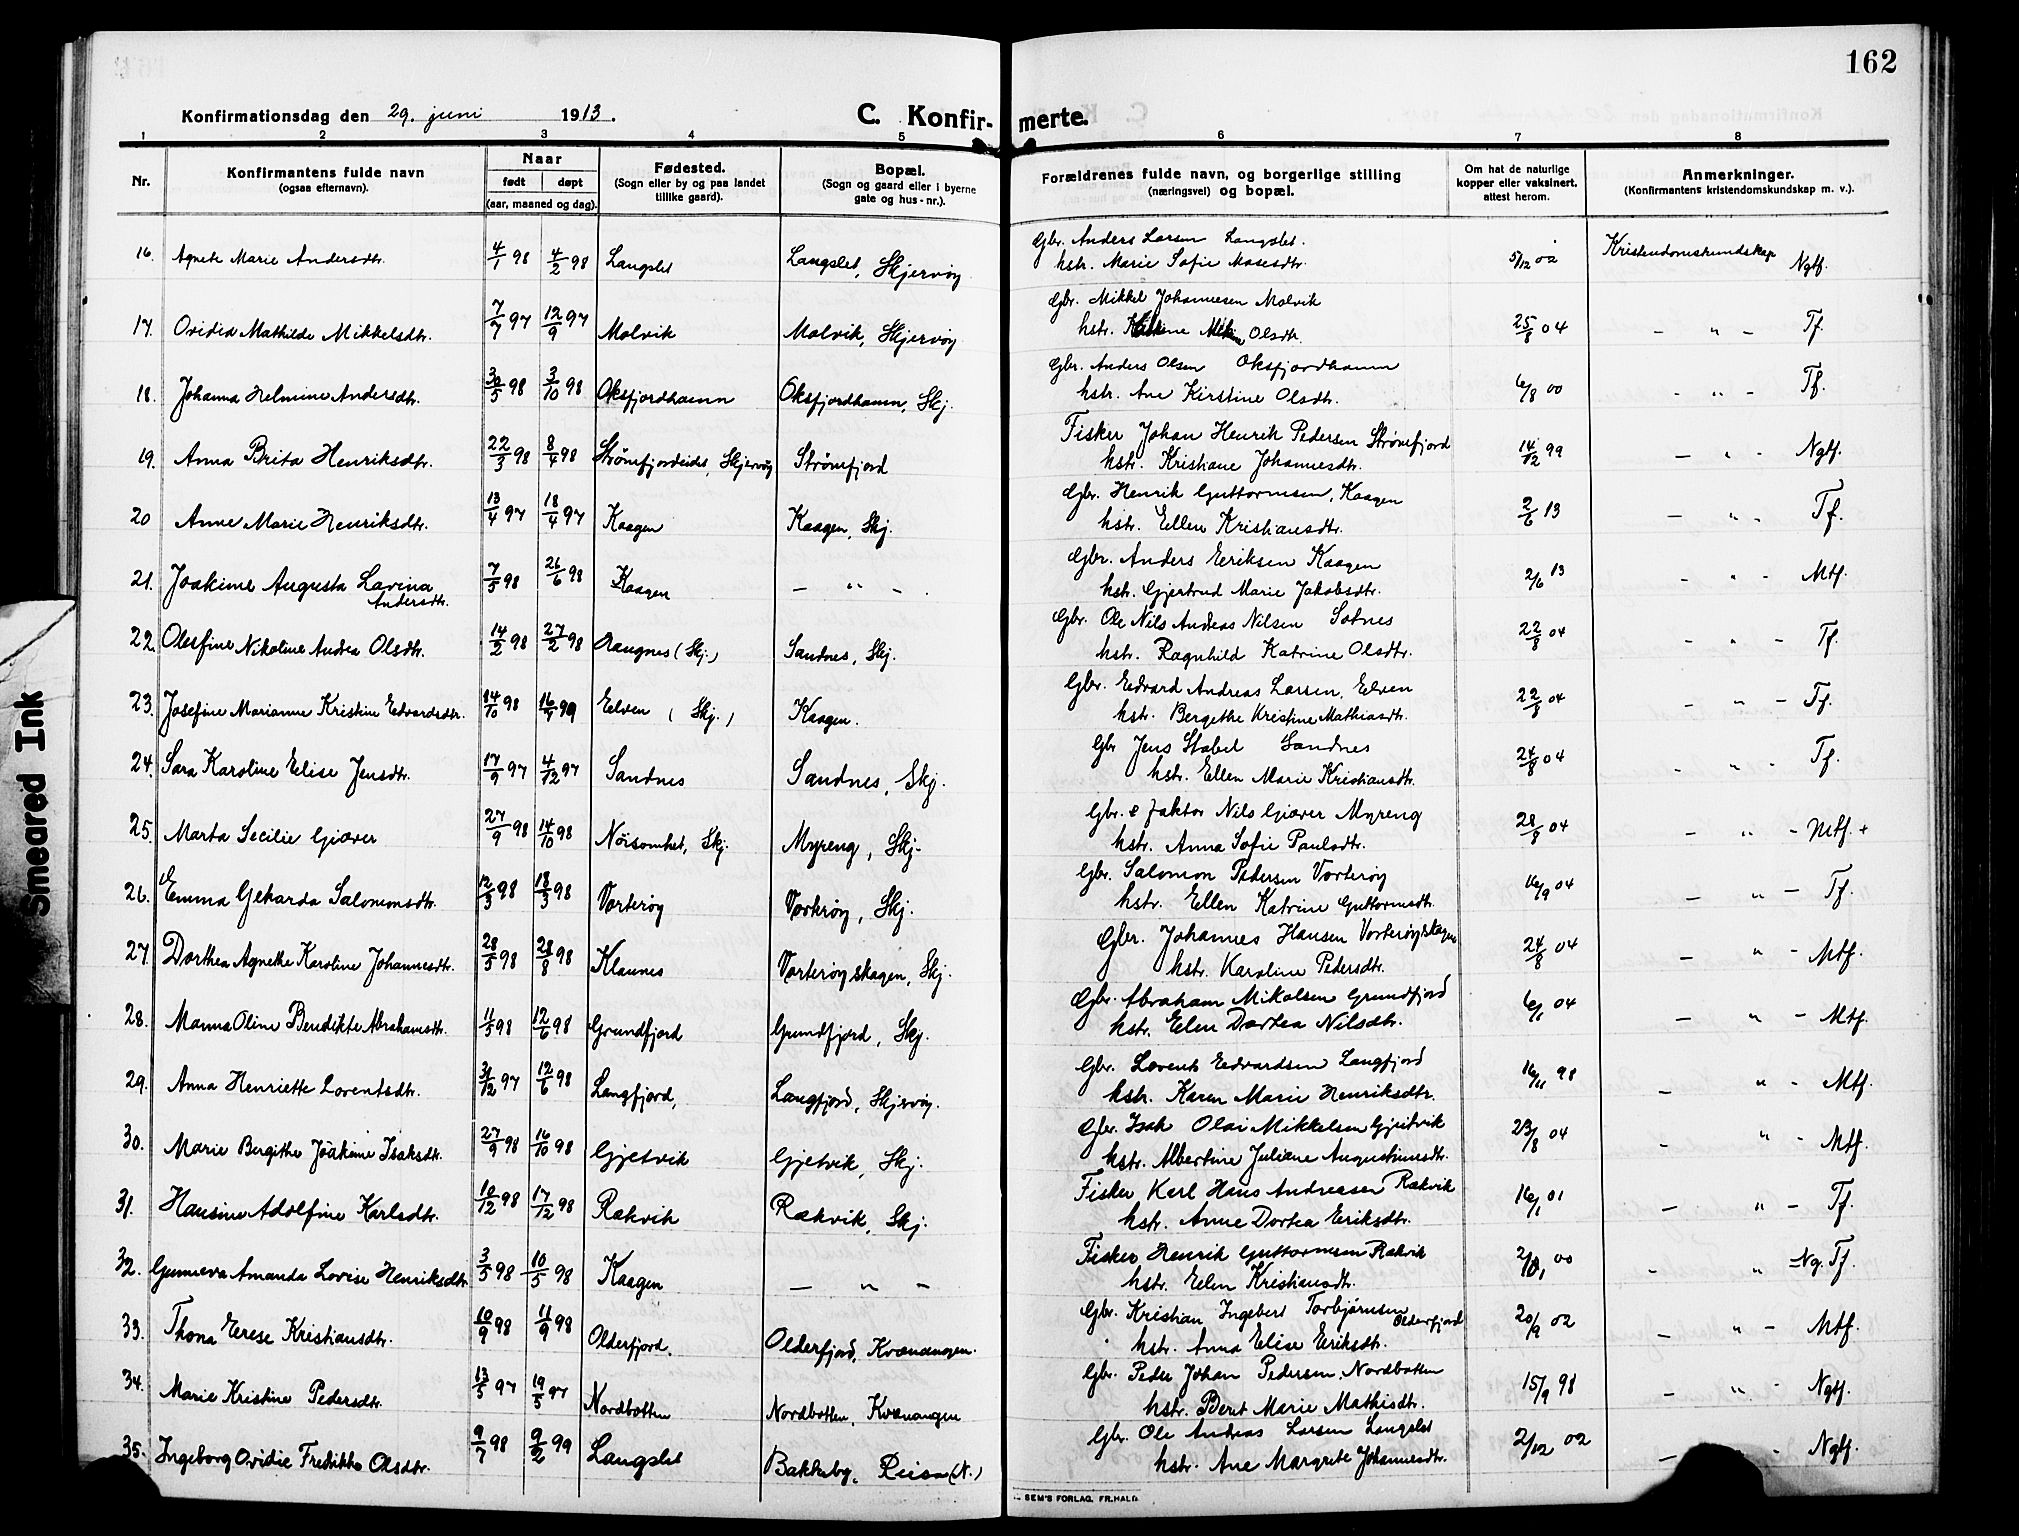 162
Konfirmationsdag den 29. juni 1913.
C. Konfir- merte.
1 2 3 4 5 6 7 8
Nr.
Konfirmantens fulde navn
(ogsaa efternavn).
Naar
født døpt
(aar, maaned og dag).
Fødested.
(Sogn eller by og paa landet
tillike gaard).
Bopæl.
(Sogn og gaard eller i byerne
gate og hus-nr.).
Forældrenes fulde navn, og borgerlige stilling
(næringsvei) og bopæl.
Om hat de naturlige
kopper eller vaksinert,
attest herom.
Anmerkninger.
(Konfirmantens kristendomskundskap m. v.).
16. Agnete Marie Andersdtr. 4/1 98 4/2 98 Langslet Langslet, Skjervøy Gbr. Anders Larsen Langslet.
hstr. Marie Sofie Mosesdtr. 5/12 02 Kristendomskundskap Ngtf.
17. Ovidia Mathilde Mikkelsdtr. 7/7 97 12/9 97 Molvik Molvik, Skjervøy Gbr. Mikkel Johannesen Molvik
hstr. Olsdtr. 25/8 04 — " — Tf.
18. Johanna Helmine Andersdtr. 30/5 98 3/10 98 Oksfjordhamn Oksfjordhamn, Skj. Gbr. Anders Olsen Oksfjordhamn
hstr. Ane Kirstine Olsdtr. 6/8 00 - " - Tf.
19. Anna Brita Henriksdtr. 22/3 98 8/4 98 Strømfjordeidet, Skjervøy Strømfjord Fisker Johan Henrik Pedersen Strømfjord
hstr. Kristiane Johannesdtr. 14/12 99 — " - Ngtf.
20 Anne Marie Henriksdtr. 13/4 97 18/4 97 Kaagen Kaagen, Skj. Gbr. Henrik Guttormsen, Kaagen
hstr. Ellen Kristiansdtr. 2/6 13 — " - Tf.
21. Joakime Augusta Lavina
Andersdtr. 7/5 98 26/6 98 Kaagen — " — Gbr. Anders Eriksen Kaagen
hstr. Gjertrud Marie Jakobsdtr. 2/6 13 - " - Mtf.
22. Olesfine Nikoline Andrea Olsdtr. 14/2 98 27/2 98 (Skj.) Sandnes, Skj. Gbr. Ole Nils Andreas Nilsen
hstr. Ragnhild Katrine Olsdtr. 22/8 04 - " - Tf.
23. Josefine Marianne Kristine Edvardsdtr. 14/10 98 Elven (Skj.) Kaagen. Gbr. Edvard Andreas Larsen, Elven
hstr. Bergethe Kristine Mathiasdtr. 22/8 04 - " - Tf.
24. Sara Karoline Elise Jensdtr. 17/9 97 4/12 97 Sandnes Sandnes, Skj. Gbr Jens Stabel Sandnes
hstr. Ellen Marie Kristiansdtr. 24/8 04 - " - Tf.
25. Marta Secilie Giæver 27/9 98 14/10 98 Nøisomhet, Skj. Myreng, Skj. Gbr. & faktor Nils Giæver Myreng
hstr. Anna Sofie Paulsdtr. 28/8 04 — " - Mtf. +
26. Emma Gekarda Salomonsdtr. 12/3 98 18/3 98 Vorterøy Vorterøy, Skj. Gbr. Salomon Pedersen Vorterøy
hstr. Ellen Katrine Guttormsdtr. 16/9 04 — " — Tf.
27. Dorthea Agnethe Karoline Johannesdtr. 28/5 98 28/8 98 Klaunes Vorterøyskagen, Skj. Gbr. Johannes Hansen Vorterøyskagen
hstr. Karoline Pedersdtr. 24/8 04 — " - Mtf.
28. Manna Oline Bendikte Abrahamsdtr. 11/5 98 12/6 98 Grundfjord Grundfjord, Skj. Gbr. Abraham Mikalsen Grundfjord
hstr. Elen Dortea Nilsdtr. 6/1 04 — " - Mtf.
29. Anna Henriette Lorentsdtr. 31/12 97 12/6 98 Langfjord, Langfjord, Skjervøy. Gbr. Lorents Edvardsen Langfjord
hstr. Karen Marie Henriksdtr. 16/11 98 — " - Mtf.
30. Marie Bergithe Joakime Isaksdtr. 27/9 98 16/10 98 Gjetvik Gjetvik, Skj. Gbr. Isak Olai Mikkelsen Gjeitvik
hstr. Albertine Juliane Augustinusdtr. 23/8 04 - " - Mtf.
31. Hansine Adolfine Karlsdtr. 10/12 98 17/12 98 Rakvik Rakvik, Skj. Fisker Karl Hans Andreasen Rakvik
hstr. Anne Dortea Eriksdtr. 16/1 01 — " — Tf.
32. Gunneva Amanda Lovise Henriksdtr 3/5 98 10/5 98 Kaagen — " — Fisker Henrik Guttormsen Rakvik
hstr. Elen Kristiansdtr. 00 - " - Ng. Tf.
33. Thona Erese Kristiansdtr. 10/9 98 11/9 98 Olderfjord. Olderfjord, Kvænangen. Gbr. Kristian Ingebert Torbjørnsen Olderfjord
hstr. Anna Elise Eriksdtr. 20/9 02 — " — Mtf.
34. Marie Kristine Pedersdtr. 13/5 97 19/5 97 Nordbotten Nordbotten, Kvænangen Gbr. Peder Johan Pedersen, Nordbotten
hstr. Berit Marie Mathisdtr. 15/9 98 — " - Ngtf.
35. Ingeborg Ovidie Fredrikke Olsdtr. 9/7 98 9/2 99 Langslet Bakkeby, Reisa (N.) Gbr. Ole Andreas Larsen Langslet
hstr. Ane Margrete Johannesdtr. 2/12 02 — - Ngtf.
SEM'S FORLAG, FR.HALD
Smeared Ink